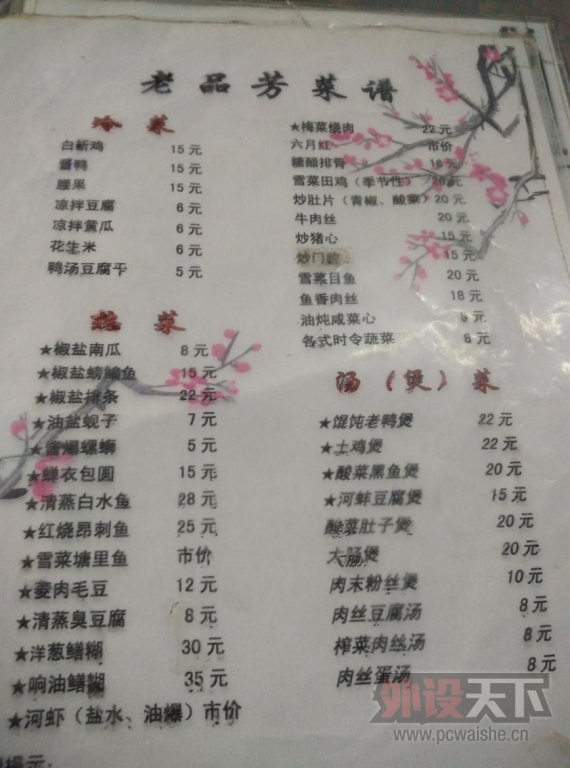 老品芳菜谱
冷菜
白斩鸡 15元
酱鸭 15元
腰果 15元
凉拌豆腐 6元
凉拌黄瓜 6元
花生米 6元
鸭汤豆腐干 5元
热菜
★椒盐南瓜 8元
★椒盐鳑鲏鱼 15元
★椒盐排条 22元
★油盐蚬子 7元
★酱爆螺蛳 5元
★蝉衣包圆 15元
★清蒸白水鱼 28元
★红烧昂刺鱼 25元
★雪菜塘里鱼 市价
★菱肉毛豆 12元
★清蒸臭豆腐 8元
★洋葱鳝糊 30元
★响油鳝糊 35元
★河虾（盐水、油爆）市价
★梅菜烧肉 22元
六月红 市价
糖醋排骨 16元
雪菜田鸡（季节性）20元
炒肚片（青椒、酸菜）20元
牛肉丝 20元
炒猪心 15元
炒门 15元
雪菜目鱼 20元
鱼香肉丝 18元
油炖咸菜心 8元
各式时令蔬菜 8元
汤（煲）菜
★馄饨老鸭煲 22元
★土鸡煲 22元
★酸菜黑鱼煲 20元
★河蚌豆腐煲 15元
酸菜肚子煲 20元
大肠煲 20元
肉末粉丝煲 10元
肉丝豆腐汤 8元
榨菜肉丝汤 8元
肉丝蛋汤 8元
提示:
外设天下
www.pcwaishe.cn